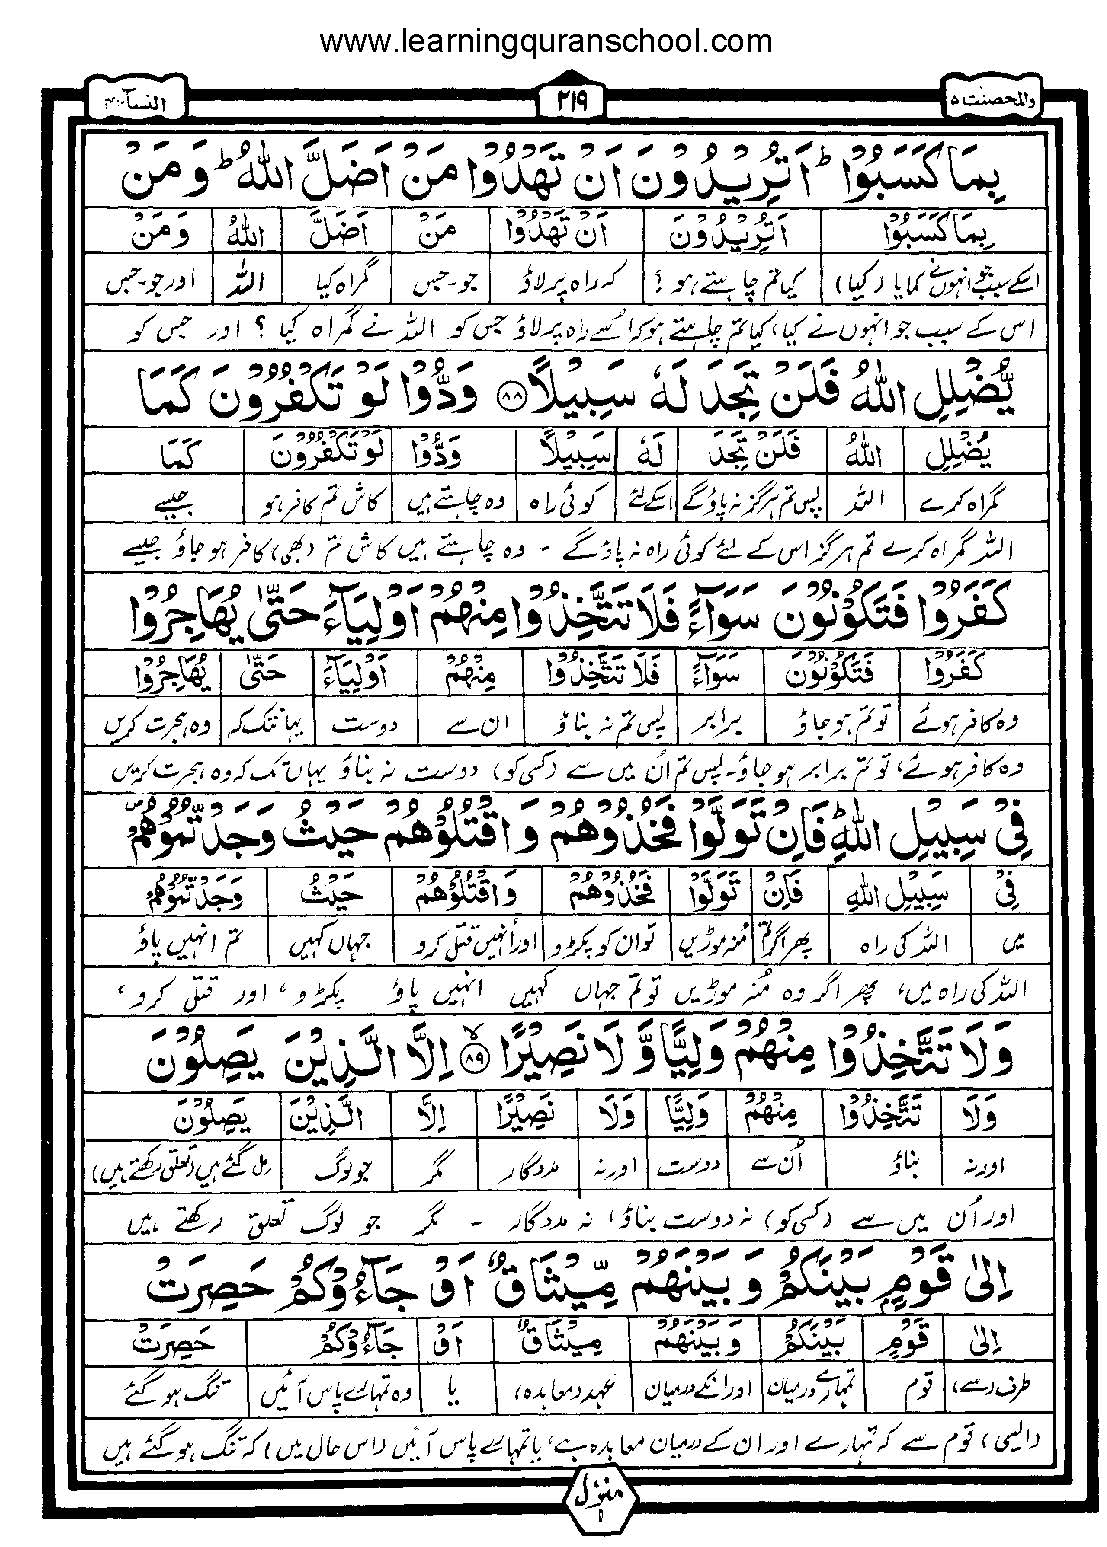 www.learningquranschool.com
والمحصنت ۵ ۲۱۹ النسآء ۴
بِمَا كَسَبُوْا ؕ اَتُرِيْدُوْنَ اَنْ تَهْدُوْا مَنْ اَضَلَّ اللّٰهُ ؕ وَ مَنْ
بِمَا كَسَبُوْا اَتُرِيْدُوْنَ اَنْ تَهْدُوْا مَنْ اَضَلَّ اللّٰهُ وَ مَنْ
اسکے سبب جو انہوں نے کمایا (کیا) کیا تم چاہتے ہو؟ کہ راہ پر لاؤ جو۔جس گمراہ کیا اللہ اور جو۔جس
اس کے سبب جو انہوں نے کیا، کیا تم چاہتے ہو کہ اُسے راہ پر لاؤ جس کو اللہ نے گمراہ کیا ؟ اور جس کو
يُّضْلِلِ اللّٰهُ فَلَنْ تَجِدَ لَهٗ سَبِيْلًا ۸۸ وَدُّوْا لَوْ تَكْفُرُوْنَ كَمَا
يُضْلِلِ اللّٰهُ فَلَنْ تَجِدَ لَهٗ سَبِيْلًا وَدُّوْا لَوْ تَكْفُرُوْنَ كَمَا
گمراہ کرے اللہ پس تم ہرگز نہ پاؤ گے اسکے لئے کوئی راہ وہ چاہتے ہیں کاش تم کافر ہو جیسے
اللہ گمراہ کرے تم ہرگز اس کے لئے کوئی راہ نہ پاؤ گے ۔ وہ چاہتے ہیں کاش تم (بھی) کافر ہو جاؤ جیسے
كَفَرُوْا فَتَكُوْنُوْنَ سَوَآءً فَلَا تَتَّخِذُوْا مِنْهُمْ اَوْلِيَآءَ حَتّٰى يُهَاجِرُوْا
كَفَرُوْا فَتَكُوْنُوْنَ سَوَآءً فَلَا تَتَّخِذُوْا مِنْهُمْ اَوْلِيَآءَ حَتّٰى يُهَاجِرُوْا
وہ کافر ہوئے تو تم ہو جاؤ برابر پس تم نہ بناؤ ان سے دوست یہانتک کہ وہ ہجرت کریں
وہ کافر ہوئے، تو تم برابر ہو جاؤ۔ پس تم اُن میں سے (کسی کو) دوست نہ بناؤ یہاں تک کہ وہ ہجرت کریں
فِيْ سَبِيْلِ اللّٰهِ ؕ فَاِنْ تَوَلَّوْا فَخُذُوْهُمْ وَ اقْتُلُوْهُمْ حَيْثُ وَجَدْتُّمُوْهُمْ ۪
فِيْ سَبِيْلِ اللّٰهِ فَاِنْ تَوَلَّوْا فَخُذُوْهُمْ وَ اقْتُلُوْهُمْ حَيْثُ وَجَدْتُّمُوْهُمْ
میں اللہ کی راہ پھر اگر منہ موڑیں تو ان کو پکڑو اور انہیں قتل کرو جہاں کہیں تم انہیں پاؤ
اللہ کی راہ میں، پھر اگر وہ مُنہ موڑیں تو تم جہاں کہیں انہیں پاؤ پکڑو، اور قتل کرو،
وَلَا تَتَّخِذُوْا مِنْهُمْ وَلِيًّا وَّ لَا نَصِيْرًا ۸۹ اِلَّا الَّذِيْنَ يَصِلُوْنَ
وَلَا تَتَّخِذُوْا مِنْهُمْ وَلِيًّا وَّلَا نَصِيْرًا اِلَّا الَّذِيْنَ يَصِلُوْنَ
اور نہ بناؤ اُن سے دوست اور نہ مددگار مگر جو لوگ مل گئے ہیں (تعلق رکھتے ہیں)
اور اُن میں سے (کسی کو) نہ دوست بناؤ، نہ مددگار ۔ مگر جو لوگ تعلق رکھتے ہیں
اِلٰى قَوْمٍۭ بَيْنَكُمْ وَ بَيْنَهُمْ مِّيْثَاقٌ اَوْ جَآءُوْكُمْ حَصِرَتْ
اِلٰى قَوْمٍ بَيْنَكُمْ وَ بَيْنَهُمْ مِيْثَاقٌ اَوْ جَآءُوْكُمْ حَصِرَتْ
طرف (سے) قوم تمہارے درمیان اور انکے درمیان عہد (معاہدہ) یا وہ تمہارے پاس آئیں تنگ ہو گئے
(ایسی) قوم سے کہ تمہارے اور ان کے درمیان معاہدہ ہے، یا تمہارے پاس آئیں (اس حال میں) کہ تنگ ہو گئے ہیں
منزل ۱